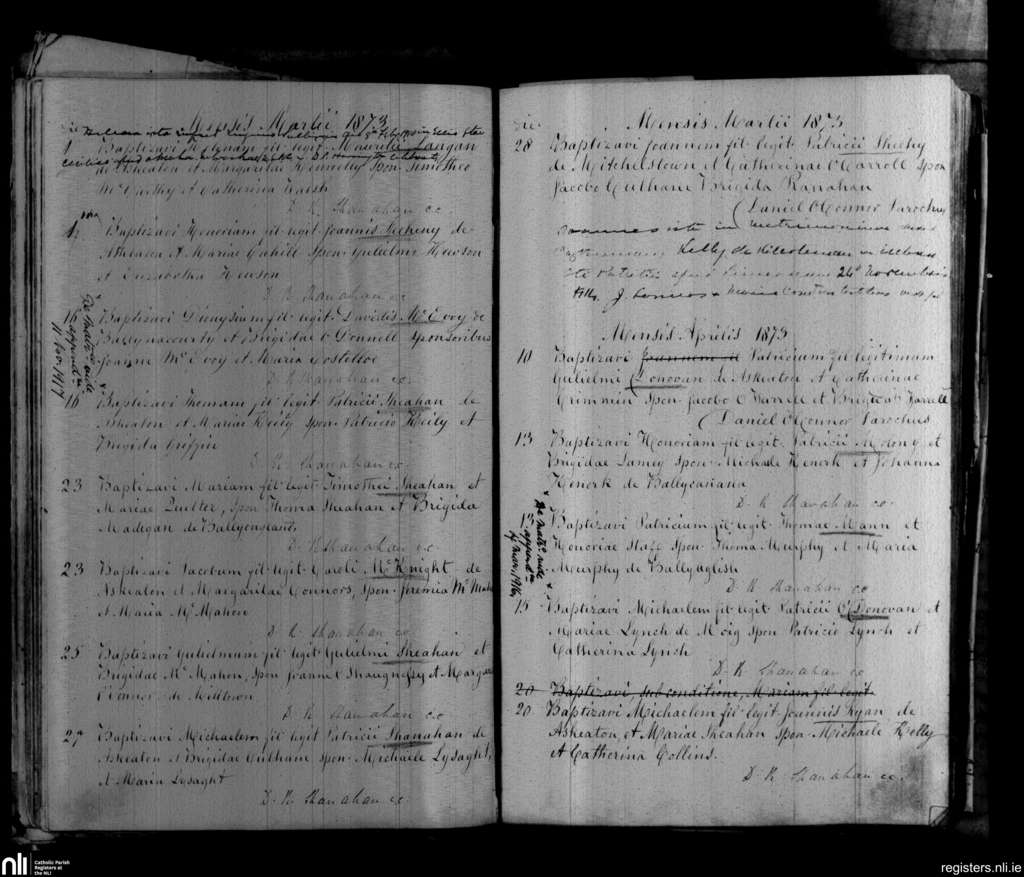 Die Mensis Martii 1873
1 Baptizavi fil legit Mauritii Langan
de Askeaton et Margaritae Kennelly Spon. Timotheo
McCarthy et Catherina Walsh
D. R. Shanahan cc.
Baptizavi Honoriam fil legit Joannis Sheehy de
Askeaton et Mariae Cahill Spon. Gulielmi Hewson
et Hewson
D. R. Shanahan cc
16 Baptizavi Dionysium fil legit Davidis McEvoy de
Ballynacourty et Brigidae O'Donnell sponsoribus
Joanne McEvoy et Maria Costeloe
D. R. Shanahan cc.
De Matr. vide
append.
11 Nov. 1917
16 Baptizavi Thomam fil legit Patricii Sheahan de
Askeaton et Mariae Kiely spon. Patricio Kiely et
Brigida Griffin
D. R. Shanahan cc.
23 Baptizavi Mariam fil legit Timothei Sheahan et
Mariae Quilter, Spon Thoma Sheahan et Brigida
Madigan de
D. R. Shanahan c.c
23 Baptizavi Jacobum fil legit Caroli McKnight de
Askeaton et Margaritae Connors, Spon Jeremia McMahon
et Maria McMahon
D. R. Shanahan cc.
25 Baptizavi Gulielmum fil legit Gulielmi Sheahan et
Brigidae McMahon, Spon Joanne O Shaughnessy et
de Milltown
D. R. Shanahan c.c
27 Baptizavi Michaelem fil legit Patricii Shanahan de
Askeaton et Brigidae Culhane spon. Michaele Lysaght,
et Maria Lysaght
D. R. Shanahan cc.
Die Mensis Martii 1873
28 Baptizavi Joannem fil legit Patricii Sheehy
de Mitchelstown et Catherinae O'Carroll spon
Jacobo Culhane Brigida Ranahan
(Daniel O'Connor Parochus
Joannes iste in matrimonium
Kelly de in Ecclesia
24º Novembris
Mensis Aprilis 1873
10 Baptizavi Joannem Patricium fil legitimum
Gulielmi (Donovan de Askeaton et Catherinae
Crimmin Spon Jacobo O Farrell et Brigida Farrell
(Daniel O'Connor Parochus
13 Baptizavi Honoriam fil legit Patricii Molony et
Brigidae Lamey Spon. Michaele Kenerk et Johanna
Kenerk de Ballycasiana
D. R. Shanahan cc.
Baptizavi Patricium fil legit Thomae Mann et
Honoriae Spon Thoma Murphy et Maria
Murphy de Ballyaglish
D. R. Shanahan cc
De Matr. vide
append.
Nov. 1916
15 Baptizavi Michaelem fil legit Patricii O'(Donovan et
Mariae Lynch de Moig Spon Patricio Lynch et
Catherina Lynch
D. R. Shanahan cc
20 Baptizavi sub conditione, Mariam fil legit
20 Baptizavi Michaelem fil legit Joannis Ryan de
Askeaton, et Mariae Sheahan Spon Michaele Kelly
et Catherina Collins.
D. R. Shanahan cc.
nli
Catholic Parish
Registers at
the NLI
registers.nli.ie